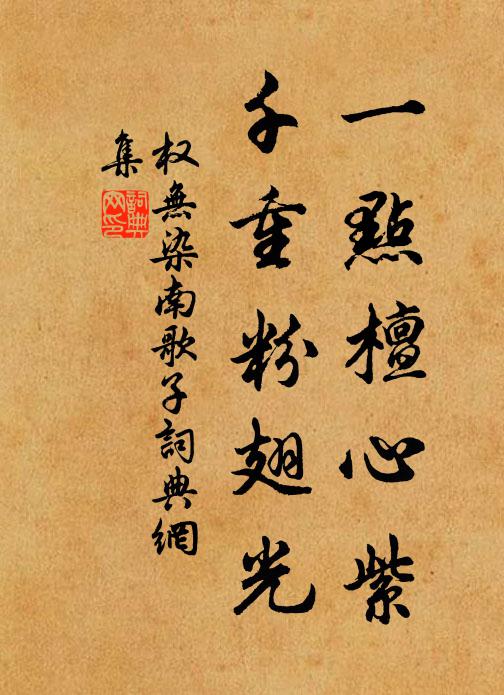 一點檀心紫
千重粉翅光
权無染南歌子詞典網
集
詞典
网印